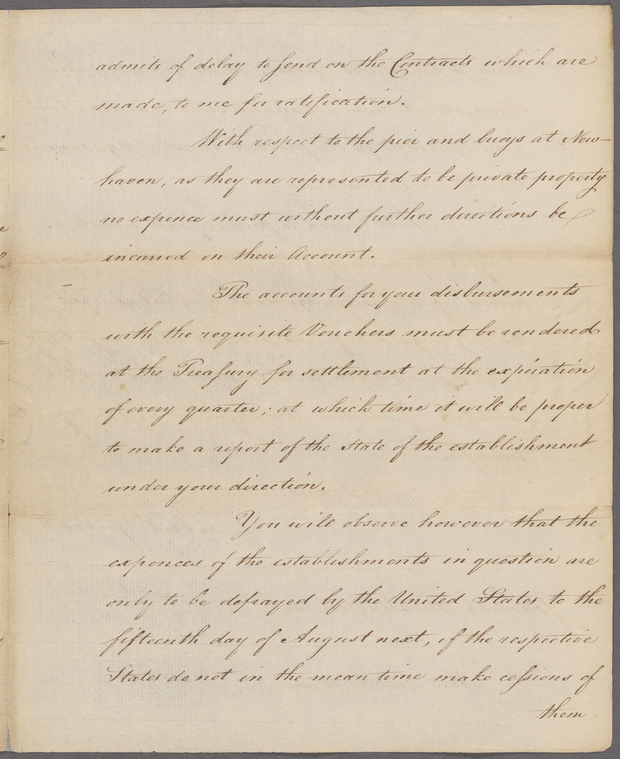 admits of delay to send on the Contracts which are
made, to me for ratification.
With respect to the pier and buoys at New-
haven, as they are represented to be private property
no expence must without further directions be
incurred on their Account.
The accounts for your disbursements
with the requisite Vouchers must be rendered
at the Treasury for settlement at the expiration
of every quarter; at which time it will be proper
to make a report of the state of the establishment
under your direction.
You will observe however that the
expences of the establishments in question are
only to be defrayed by the United States to the
fifteenth day of August next, if the respective
States do not in the mean time make cessions of
them